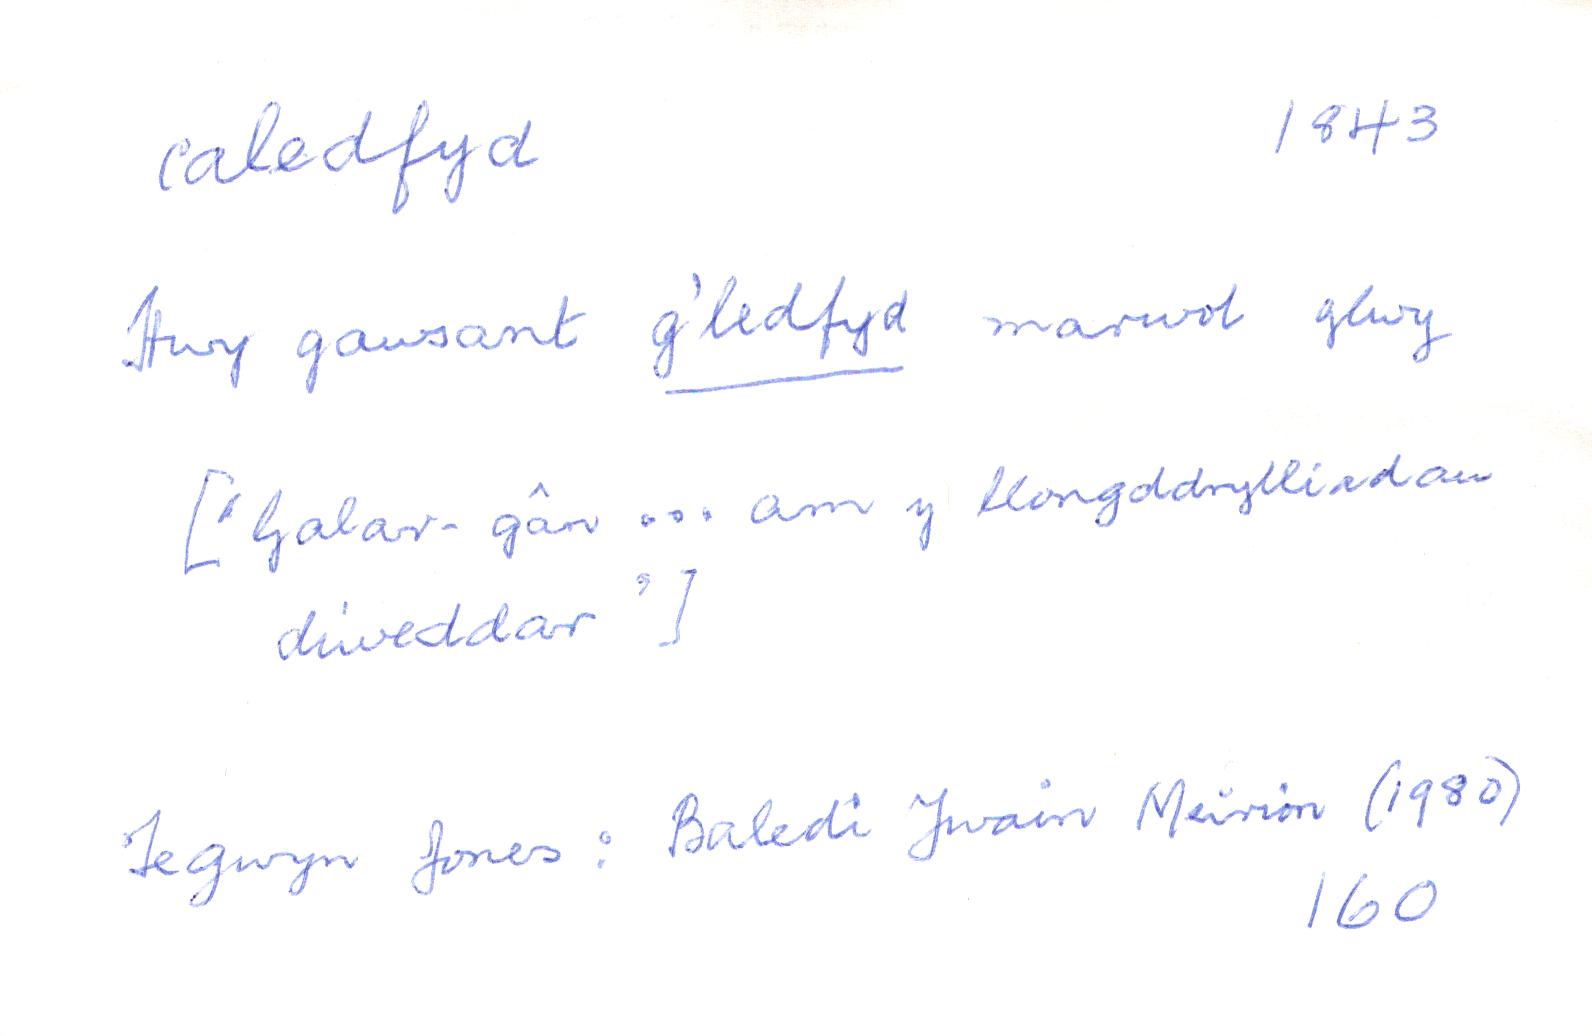 caledfyd 1843
Hwy gawsant g'ledfyd marwol glwy
["Galar-gân ... am y llongddrylliadau
diweddar"]
Tegwyn Jones: Baledi Ywain Meirion (1980)
160